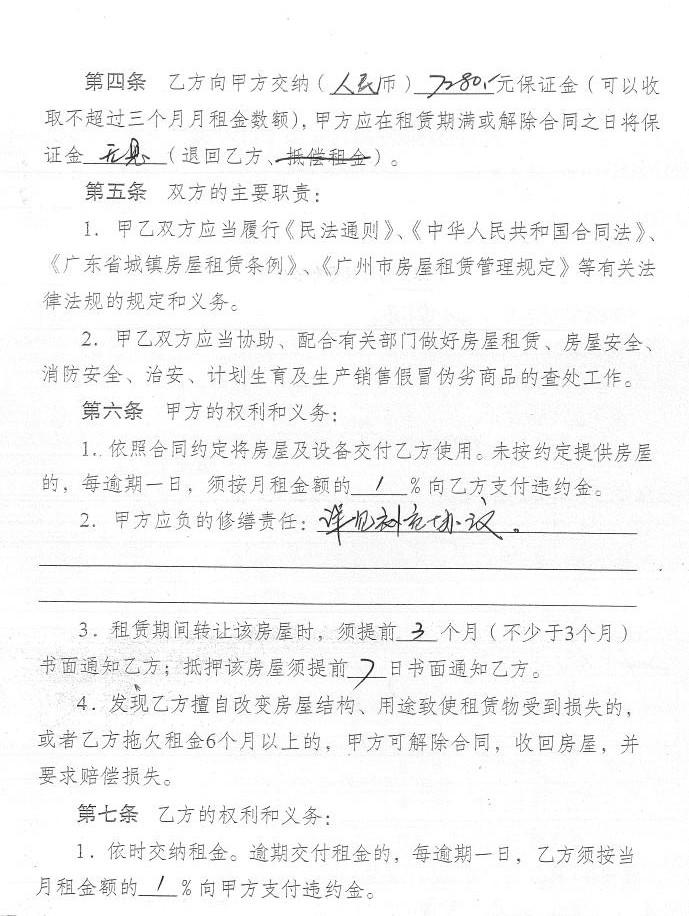 第四条 乙方向甲方交纳（人民币）7280.元保证金（可以收
取不超过三个月月租金数额），甲方应在租赁期满或解除合同之日将保
证金无息（退回乙方、抵偿租金）。
第五条 双方的主要职责：
1．甲乙双方应当履行《民法通则》、《中华人民共和国合同法》、
《广东省城镇房屋租赁条例》、《广州市房屋租赁管理规定》等有关法
律法规的规定和义务。
2．甲乙双方应当协助、配合有关部门做好房屋租赁、房屋安全、
消防安全、治安、计划生育及生产销售假冒伪劣商品的查处工作。
第六条 甲方的权利和义务：
1．依照合同约定将房屋及设备交付乙方使用。未按约定提供房屋
的，每逾期一日，须按月租金额的1％向乙方支付违约金。
2．甲方应负的修缮责任：详见补充协议。
3．租赁期间转让该房屋时，须提前3个月（不少于3个月）
书面通知乙方；抵押该房屋须提前7日书面通知乙方。
4．发现乙方擅自改变房屋结构、用途致使租赁物受到损失的，
或者乙方拖欠租金6个月以上的，甲方可解除合同，收回房屋，并
要求赔偿损失。
第七条 乙方的权利和义务：
1．依时交纳租金。逾期交付租金的，每逾期一日，乙方须按当
月租金额的1％向甲方支付违约金。